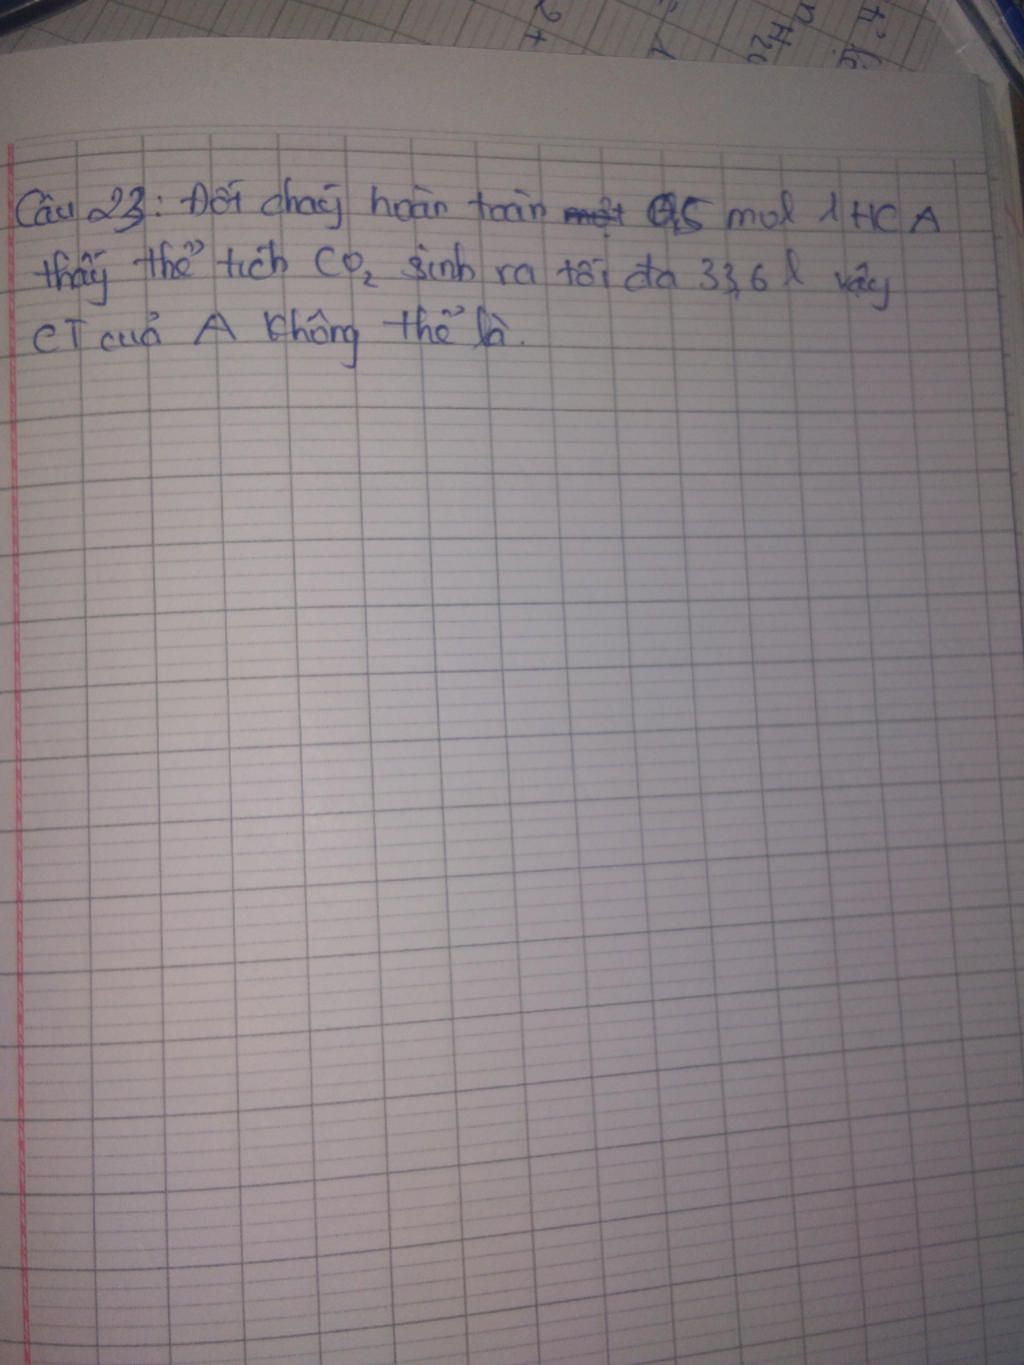 2+
1
nH20
Câu 23: Đốt cháy hoàn toàn một 0,5 mol 1 HC A
thấy thể tích CO2 sinh ra tối đa 33,6 l vậy
CT của A không thể là.